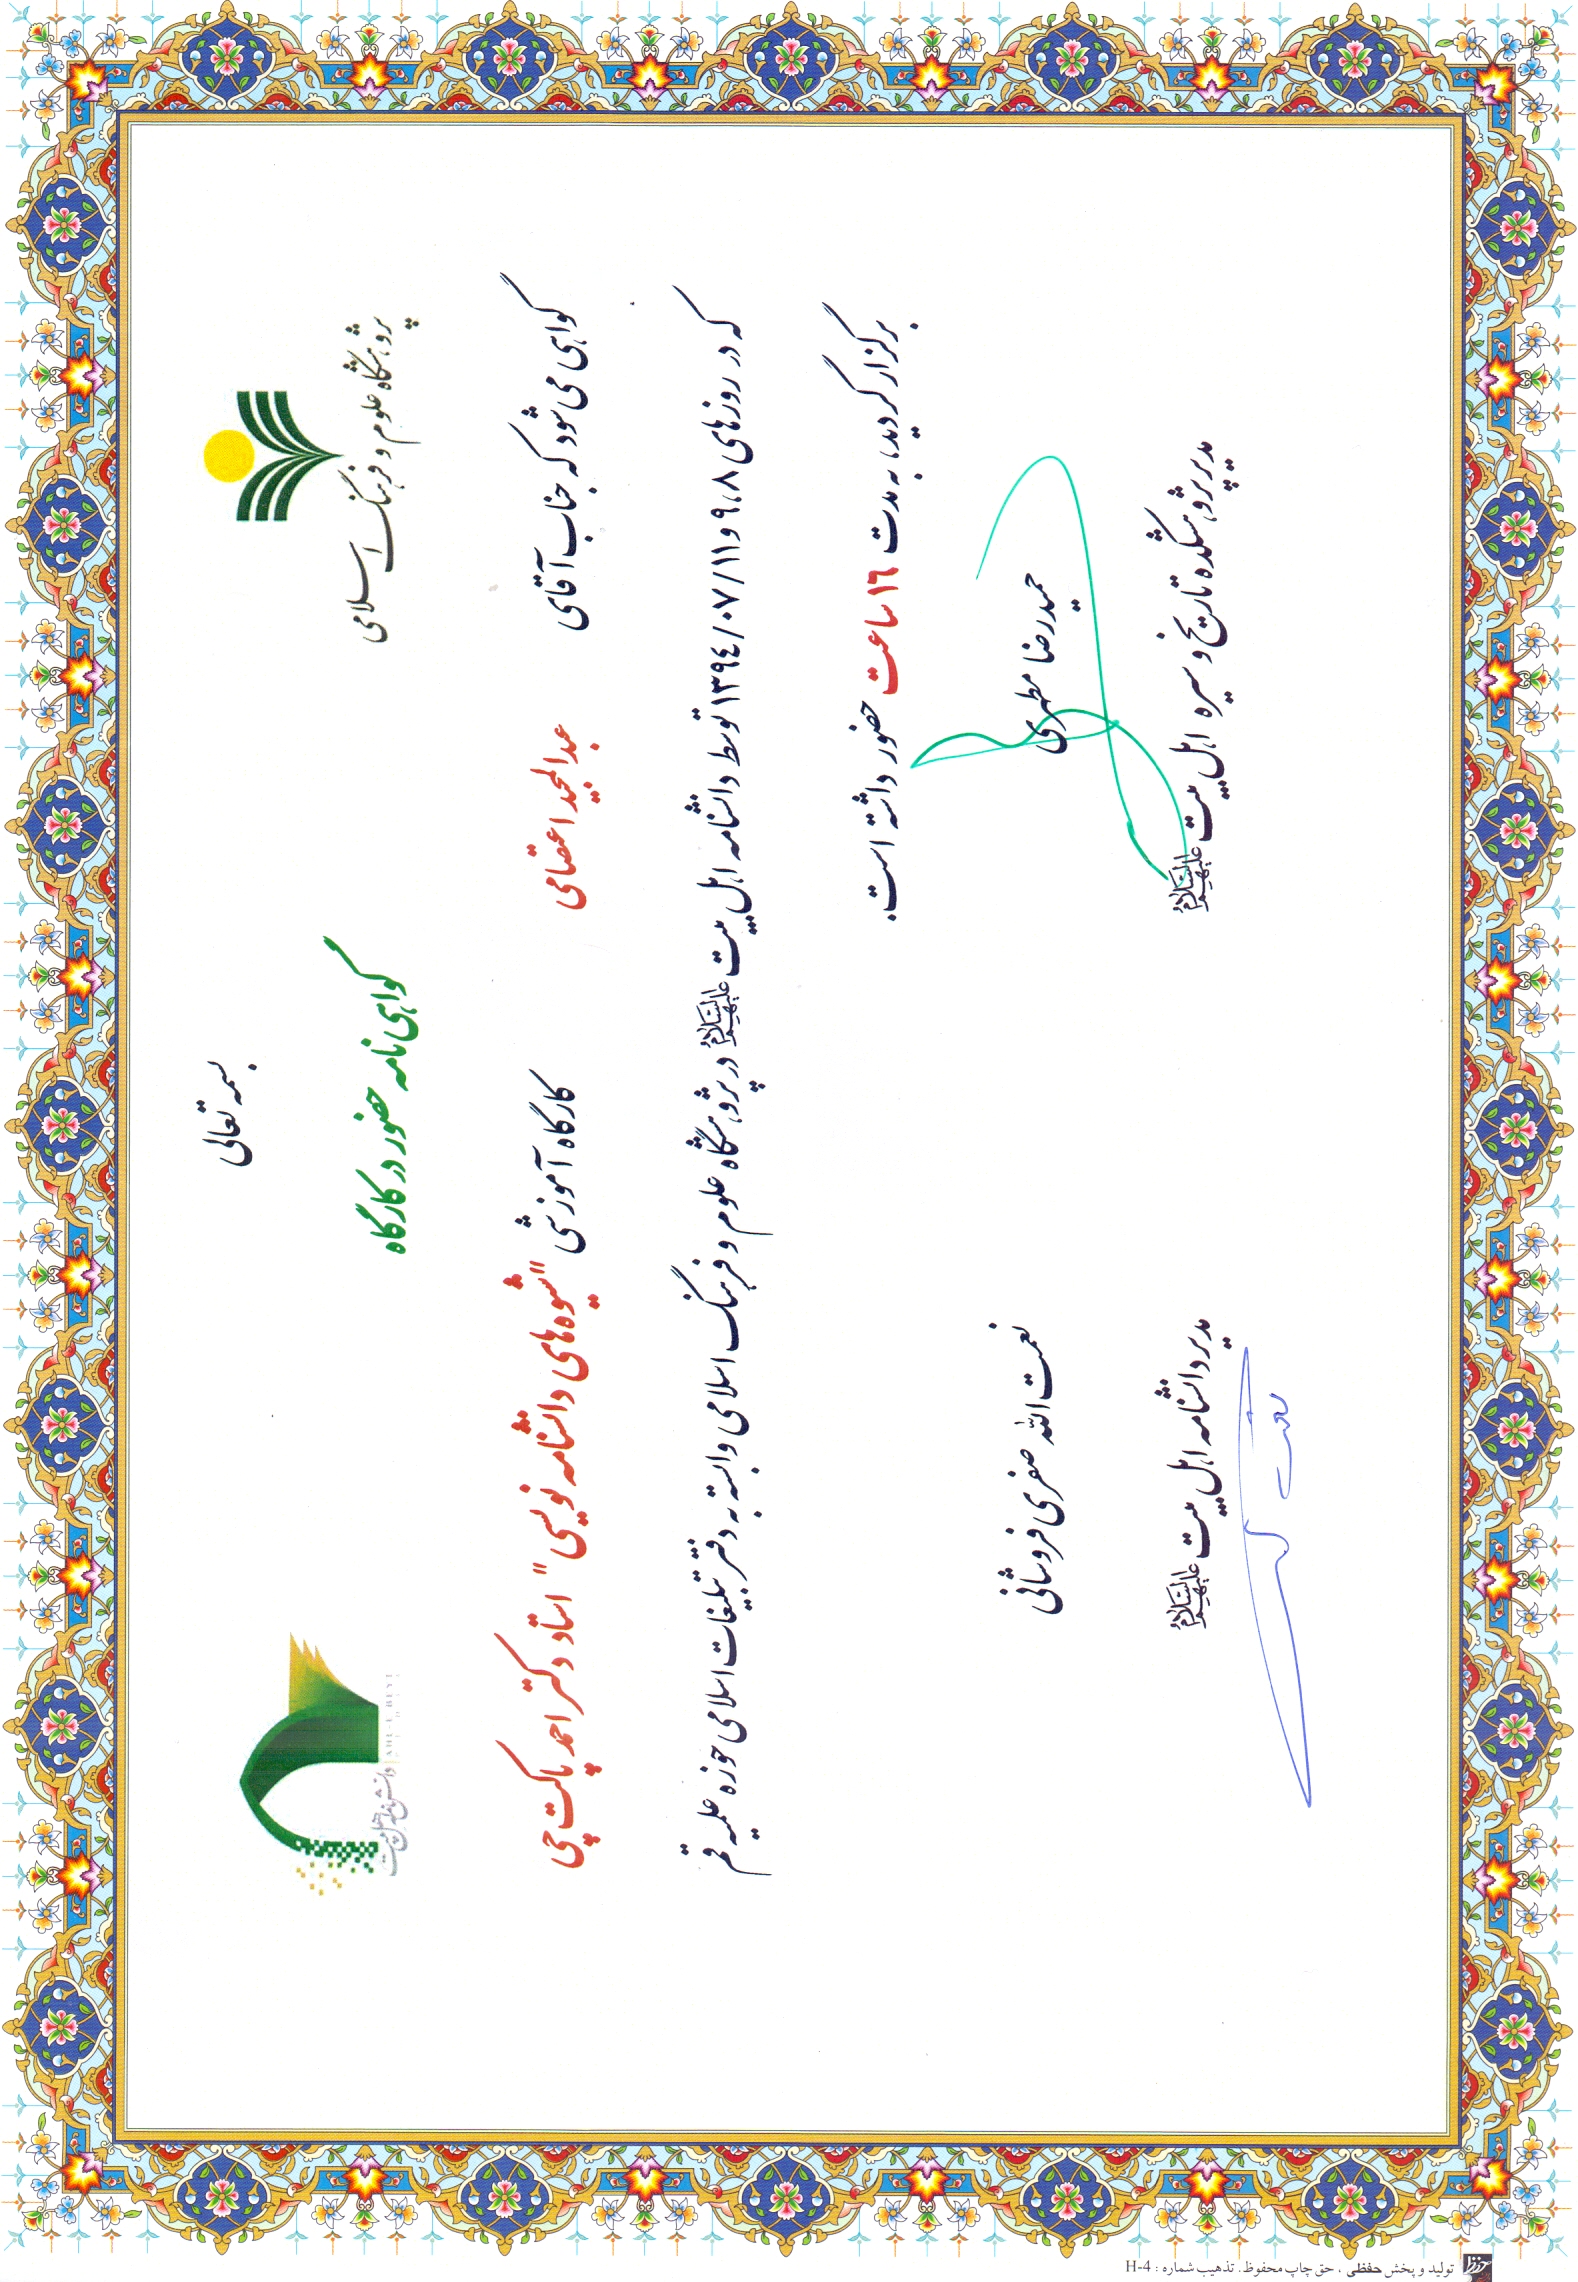 بسمه تعالی
پژوهشگاه علوم و فرهنگ اسلامی
گواهی نامه حضور در کارگاه
دانشنامه اهل بیت
گواهی می شود که جناب آقای عبدالمجید اعتصامی کارگاه آموزشی "شیوه های دانشنامه نویسی" استاد دکتر احمد پاکت چی
که در روزهای ۸،۹ و ۱۳۹٤/۰۷/۱۱ توسط دانشنامه اهل بیت علیهم السلام در پژوهشگاه علوم و فرهنگ اسلامی وابسته به دفتر تبلیغات اسلامی حوزه علمیه قم
برگزار گردید، به مدت ۱٦ ساعت حضور داشته است.
حمیدرضا مطهری
نعمت الله صفری فروشانی
مدیر پژوهشکده تاریخ و سیره اهل بیت علیهم السلام
مدیر دانشنامه اهل بیت علیهم السلام
تولید و پخش حفظی ، حق چاپ محفوظ. تذهیب شماره : H-4